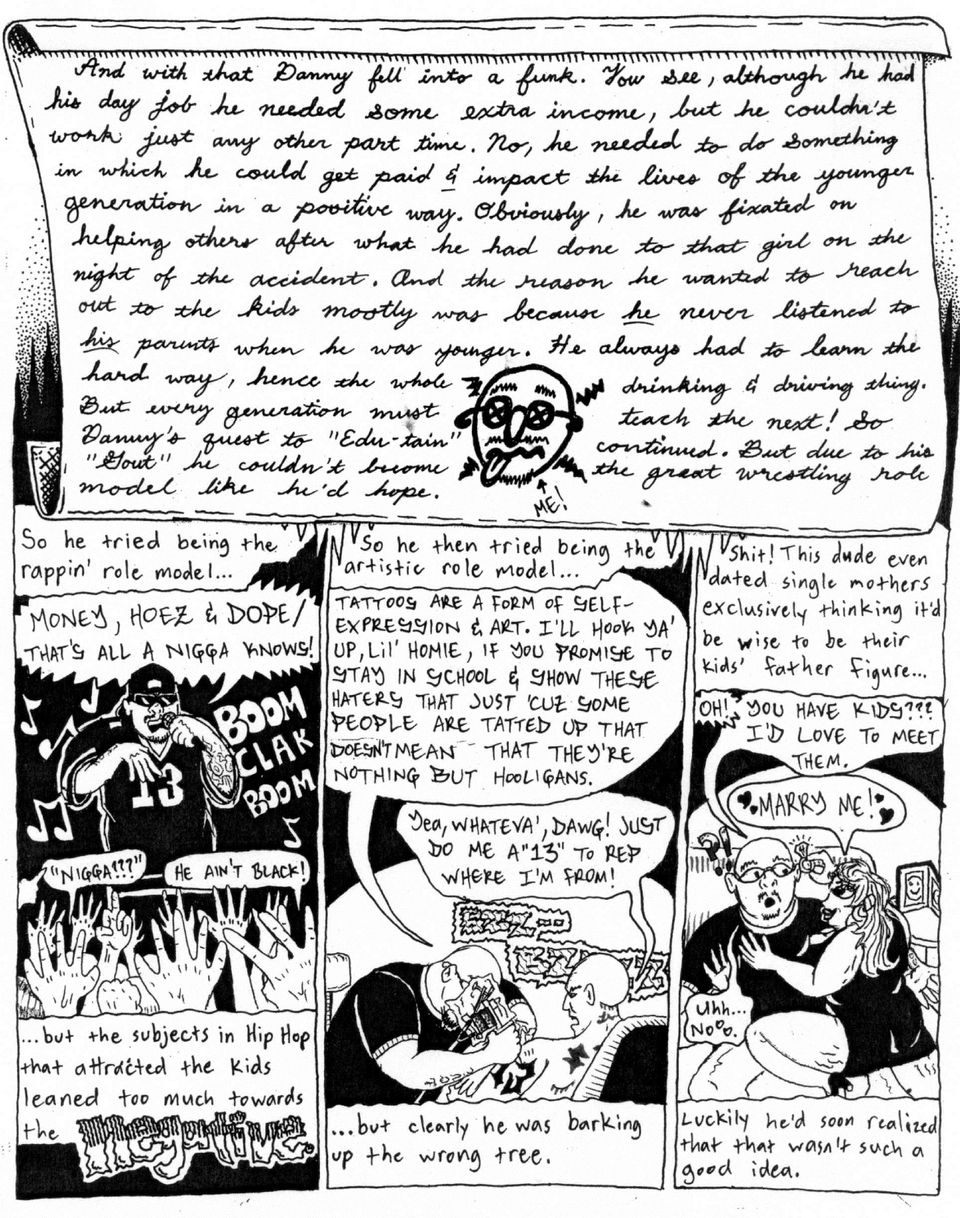 And with that Danny fell into a funk. You see, although he had
his day job he needed some extra income, but he couldn't
work just any other part time. No, he needed to do something
in which he could get paid & impact the lives of the younger
generation in a positive way. Obviously, he was fixated on
helping others after what he had done to that girl on the
night of the accident. And the reason he wanted to reach
out to the kids mostly was because he never listened to
his parents when he was younger. He always had to learn the
hard way, hence the whole drinking & driving thing.
But every generation must teach the next! So
Danny's quest to "Edu-tain" continued. But due to his
"Gout" he couldn't become the great wrestling role
model like he'd hope.
ME!
So he tried being the
rappin' role model...
MONEY, HOEZ & DOPE/
THAT'S ALL A NIGGA KNOWS!
BOOM
CLAK
BOOM
13
"NIGGA???"
HE AIN'T BLACK!
...but the subjects in Hip Hop
that attracted the kids
leaned too much towards
the Negative.
So he then tried being the
artistic role model...
TATTOOS ARE A FORM OF SELF-
EXPRESSION & ART. I'LL HOOK YA'
UP, LIL' HOMIE, IF YOU PROMISE TO
STAY IN SCHOOL & SHOW THESE
HATERS THAT JUST 'CUZ SOME
PEOPLE ARE TATTED UP THAT
DOESN'T MEAN THAT THEY'RE
NOTHING BUT HOOLIGANS.
Yea, WHATEVA', DAWG! JUST
DO ME A "13" TO REP
WHERE I'M FROM!
...but clearly he was barking
up the wrong tree.
Shit! This dude even
dated single mothers
exclusively thinking it'd
be wise to be their
kids' father figure...
OH! YOU HAVE KIDS???
I'D LOVE TO MEET
THEM.
MARRY ME!
Uhh...
No...
Luckily he'd soon realized
that that wasn't such a
good idea.